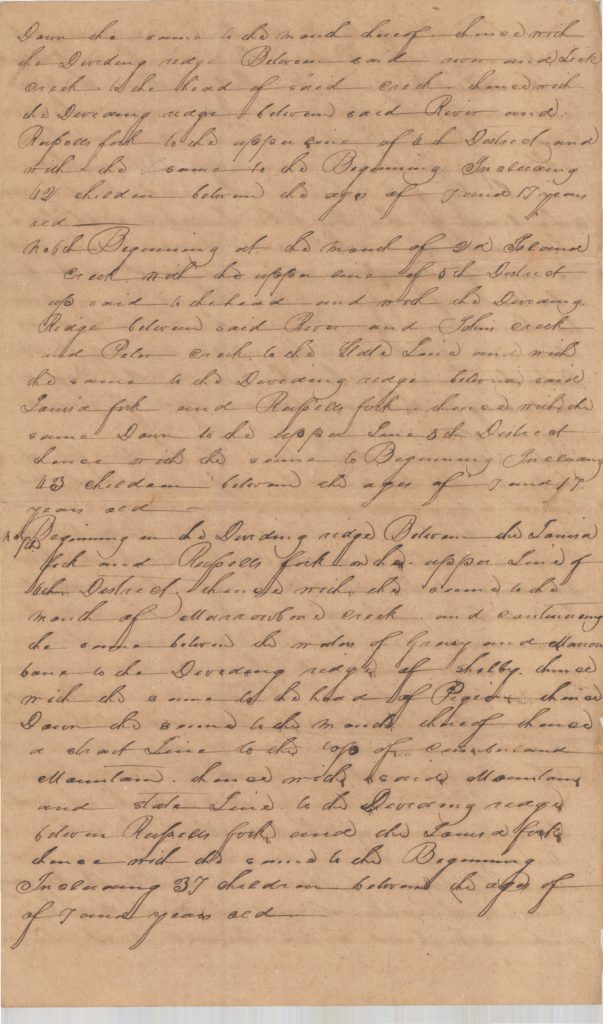 Down the same to the mouth thereof thence with
the Dividing ridge Between said river and
creek to the head of said creek. thence with
the Dividing ridge between said River and
Russells fork to the upper line of 4th District and
with the same to the Beginning Including
42 children between the ages of 7 and 17 years
old
No 6th Beginning at the mouth of 2d Island
Creek with the upper line of 5th District.
up said to the head and with the Dividing
Ridge between said River and Johns creek
and Peter creek to the State Line and with
the same to the Dividing ridge between said
Louisa fork and Russells fork. thence with the
same Down to the upper Line 5th District
thence with the same to Beginning Including
43 children between the ages of 7 and 17
years old
No 7th Beginning on the Dividing ridge Between the Louisa
fork and Russells fork on the upper Line of
District. thence with the same to the
mouth of Marrowbone creek and continuing
the same between the waters of Grassy and Marrow
bone to the Dividing ridge of Shelby. thence
with the same to the head of Pigeon thence
Down the same to the mouth thereof thence
a strait Line to the top of Cumberland
Mountain. thence with said Mountain
and state Line to the Dividing ridge
between Russells fork and the Louisa fork
thence with the same to the Beginning
Including 37 children between the ages of
of 7 and years old